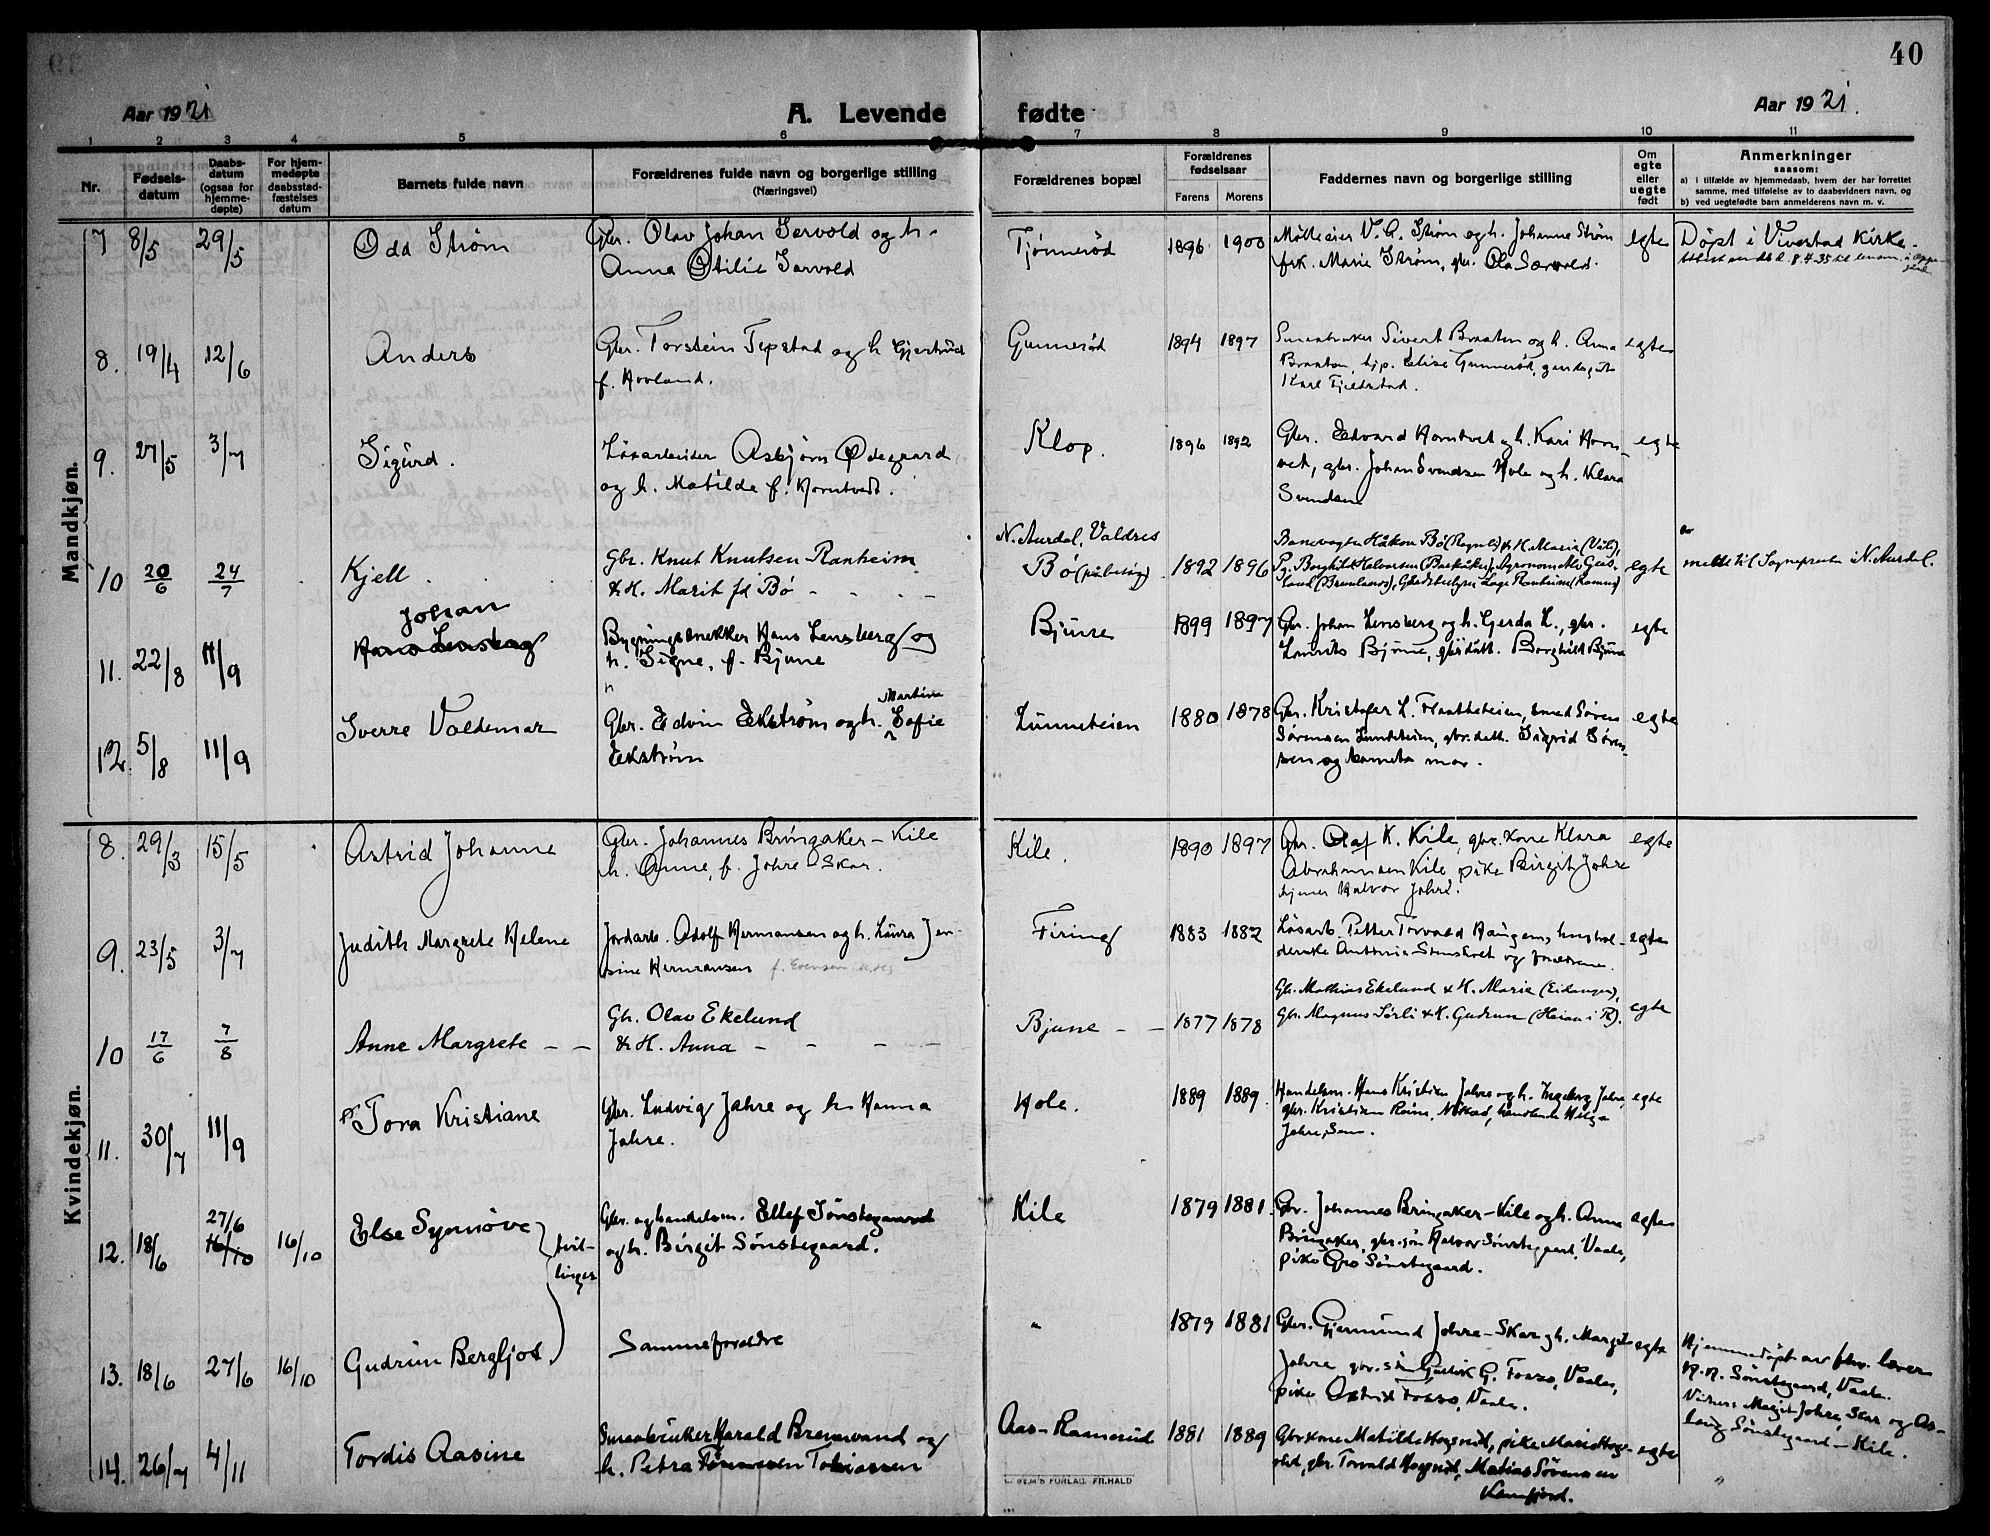 40
Aar 1921
A. Levende fødte
Aar 1921.
1 2 3 4 5 6 7 8 9 10 11
Nr.
Fødsels-
datum
Daabs-
datum
(ogsaa for
hjemme-
døpte)
For hjem-
medøpte
daabsstad-
fæstelses
datum
Barnets fulde navn
Forældrenes fulde navn og borgerlige stilling
(Næringsvei)
Forældrenes bopæl
Forældrenes
fødselsaar
Farens Morens
Faddernes navn og borgerlige stilling
Om
egte
eller
uegte
født
Anmerkninger
saasom:
a) i tilfælde av hjemmedaab, hvem der har forrettet
samme, med tilføielse av to daabsvidners navn, og
b) ved uegtefødte barn anmelderens navn m. v.
Mandkjøn.
7 8/5 29/5 Oda Strøm
Gbr. Olav Johan Servold og h.
Anna Otilie Sarvold
Tjønnerød 1896 1900
Mølleeier V. A. Strøm og h. Johanne Strøm
frk. Marie Strøm, gbr. Ola Særvold.
egte
Døpt i Vivestad Kirke.
8. 19/4 12/6 Anders
Gbr. Torstein Tepstad og h. Gjertrud
f. Hovland.
Gunnerød 1894 1897
Smaabruker Sivert Braaten og h. Anna
Braaten, hjp. Elise Gunnerød,
Karl Fjeldstad.
egte
9. 27/5 3/7 Sigurd.
Løsarbeider Asbjørn Ødegaard
og h. Matilde f. Horntvedt.
Klop. 1896 1892
Gbr. Edvard Horntvet og h. Kari Horn-
vet, gbr. Johan Svendsen Hole og h. Klara
Svendsen
egte
10 20/6 24/7 Kjell
Gbr. Knut Knutsen Ranheim
& H. Marit fd Bø
N. Aurdal, Valdres
Bø (paa besøg) 1892 1896
Banevogter Håkon Bø & H. Marie
egte
meldt til Sogneprest i N. Aurdal.
11. 22/8 11/9 Johan
Hans Lensberg
Bygningssnekker Hans Lensberg og
h. Signe, f. Bjune
Bjune 1899 1897
Gbr. Johan Lensberg og h. Gerda L., gbr.
Laurits Bjune, Borghild Bjune
egte
12. 5/8 11/9 Sverre Valdemar
Martine
Gbr. Edvin Ekstrøm og h. Sofie
Ekstrøm
Lunneteien 1880 1878
Gbr. Kristofer L. Flaatteteien, smed Søren
Sørensen Lundeteien, gbr. datt. Sigrid Søren-
sen og barnets mor.
egte
Kvindekjøn.
8. 29/3 15/5 Astrid Johanne
Gbr. Johannes Bringaker - Kile
h. Anne, f. Jahre Skar.
Kile. 1890 1897
Gbr. Olaf K. Kile, gbr. kone Klara
Abrahamsen Kile, pike Birgit Jahre
Halvor Jahre.
egte
9. 23/5 3/7 Judith Margrete Helene
Jordarb. Adolf Hermansen og h. Laura Jen-
sine Hermansen f. Evensen
Firing 1883 1882
Løsarb. Petter Torvald Haugen, hushol-
derske Anttonia Stensholt og forældrene.
egte
10 17/6 7/8 Anne Margrete
Gbr. Olav Ekelund
& H. Anna
Bjune 1877 1878
Gbr. Mathias Ekelund & H. Marie (Eidanger),
Gbr. Magnus Sørli & H. Gudrun (Heian i R).
egte
11. 30/7 11/9 Tora Kristiane
Gbr. Ludvig Jahre og h. Hanna
Jahre.
Hole. 1889 1889.
Handelsm. Hans Kristian Jahre og h. Ingeborg Jahre,
gbr. Kristian
Jahre, Sem.
egte
12. 18/6 27/6 16/10 16/10 Else Synnøve
tvil-
linger
Gbr. og handelsm. Ellef Sønstegaard
og h. Birgit Sønstegaard.
Kile 1879 1881.
Gbr. Johannes Bringaker - Kile og h. Anne
Bringaker, gbr. søn Halvor Sønstegaard, Vaale,
pike Gro Sønstegaard.
egte
13. 18/6 27/6 16/10 Gudrun Bergljot.
Samme forældre
" 1879 1881
Gbr. Gjermund Jahre - Skar og h. Margit
Jahre, gbr. søn G. Fosso, Vaale,
pike Astrid Fosso, Vaale.
egte
Hjemmedøpt av fhv. lærer
H. N. Sønstegaard, Vaale.
Vidner: Margit Jahre, Skar og As-
laug Sønstegaard - Kile.
14. 26/7 4/11 Tordis Aasine
Smaabruker Harald Brennvand og
h. Petra Tobiassen
Aas-Ramerud 1881 1889
Gbr. kone Matilde Hogsrud, pike Marie Hogs-
rud, gbr. Torvald Hogsrud, Matias Sørensen
Kamfjord.
egte
FORLAG. FR.HALD